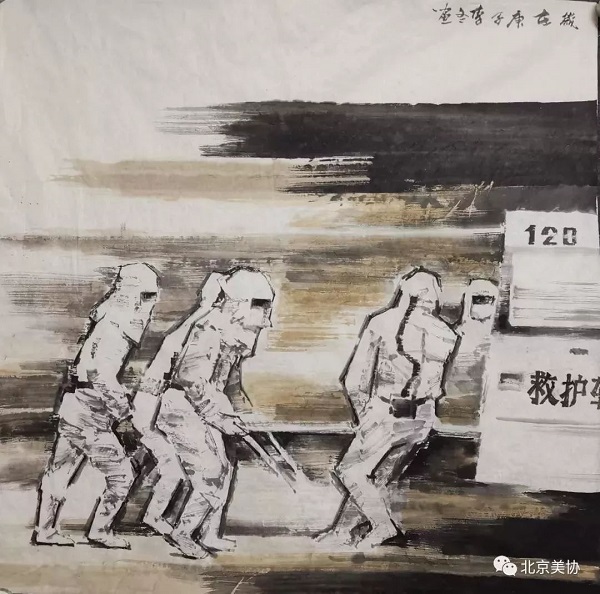 歲在庚子
120
救护车
北京美协